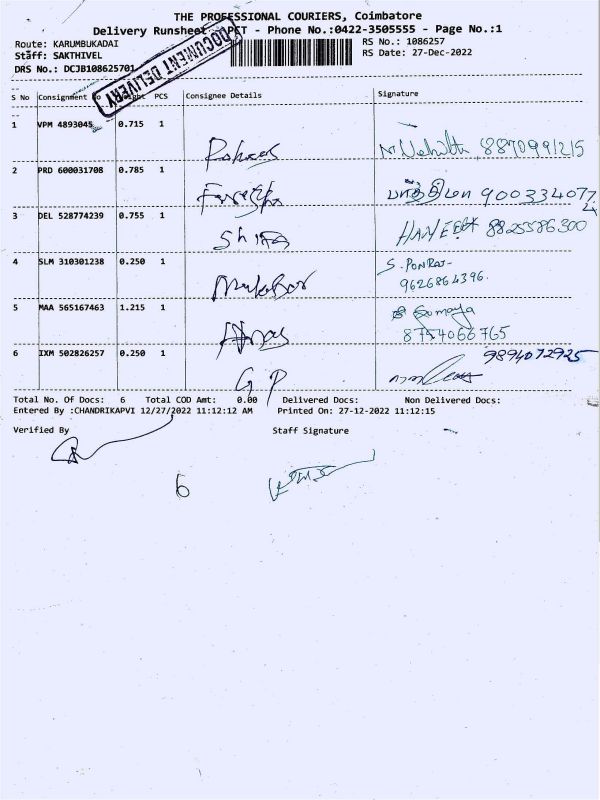 THE PROFESSIONAL COURIERS, Coimbatore
Delivery Runsheet - Phone No.:0422-3505555 - Page No.:1
Route: KARUMBUKADAI
RS No.: 1086257
Staff: SAKTHIVEL
RS Date: 27-Dec-2022
DRS No.: DCJB108625701
DOCUMENT DELIVERY
S No Consignment No PCS Consignee Details Signature
1 VPM 4893045 0.715 1
8870991215
2 PRD 600031708 0.785 1
பாத்திமா 900334077
3 DEL 528774239 0.755 1 Shifa
HANEEF 8825586300
4 SLM 310301238 0.250 1
S. PONRAJ
9626864396.
5 MAA 565167463 1.215 1
Sumaya
8754066765
6 IXM 502826257 0.250 1 GP
9894072925
Total No. Of Docs: 6 Total COD Amt: 0.00 Delivered Docs: Non Delivered Docs:
Entered By :CHANDRIKAPVI 12/27/2022 11:12:12 AM Printed On: 27-12-2022 11:12:15
Verified By Staff Signature
6